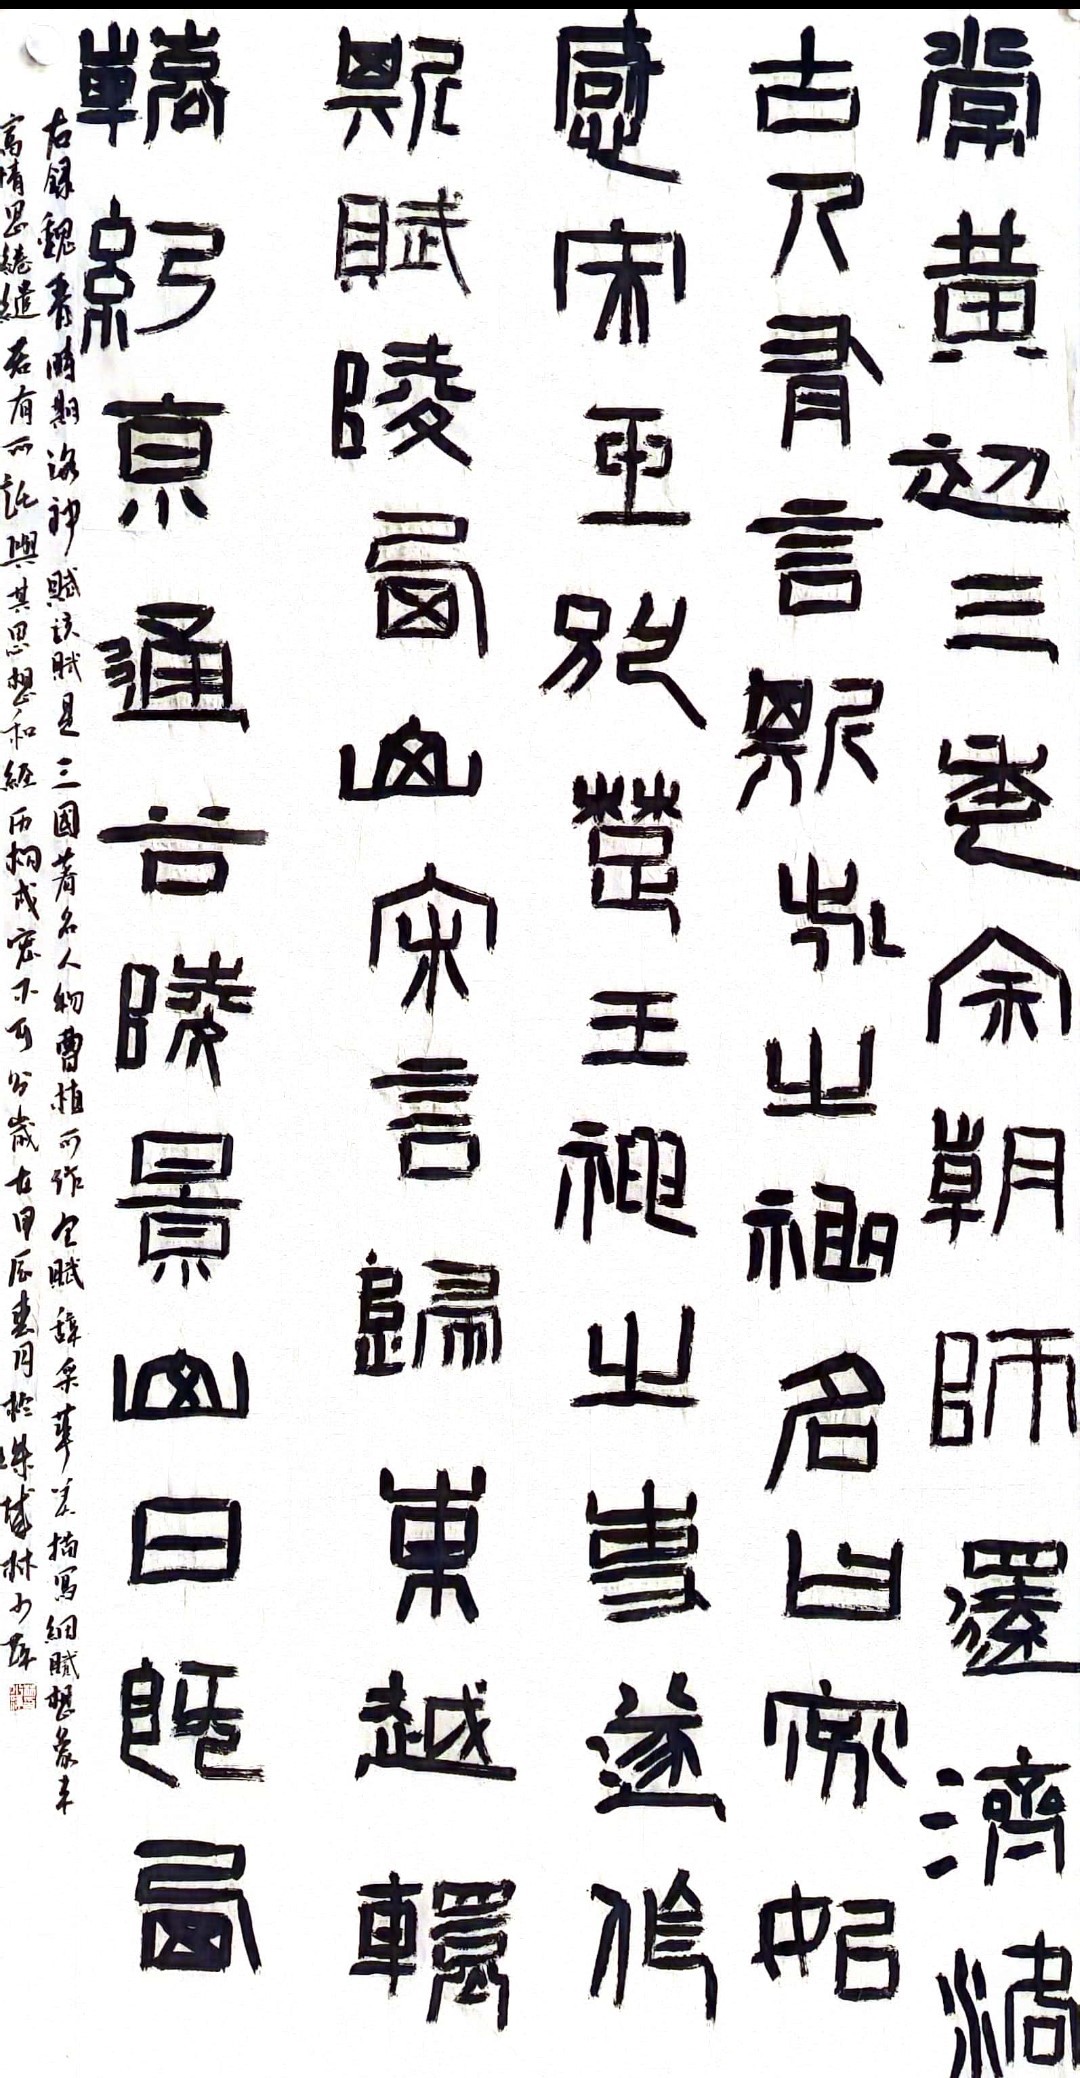 常黄初三年余朝師還濟洛
古人有言斯水之神名曰宓妃
感宋玉別楚王神之事遂作
斯賦陵西山余言歸東越轘
轅紀京通谷陵景山日既西
右録魏晋時期洛神賦該賦是三國著名人物曹植所作全賦辞采華美描寫細膩想象丰
高情思綣繾若有所託與其思想和經历構成密不可分歲在甲辰春月於城林少